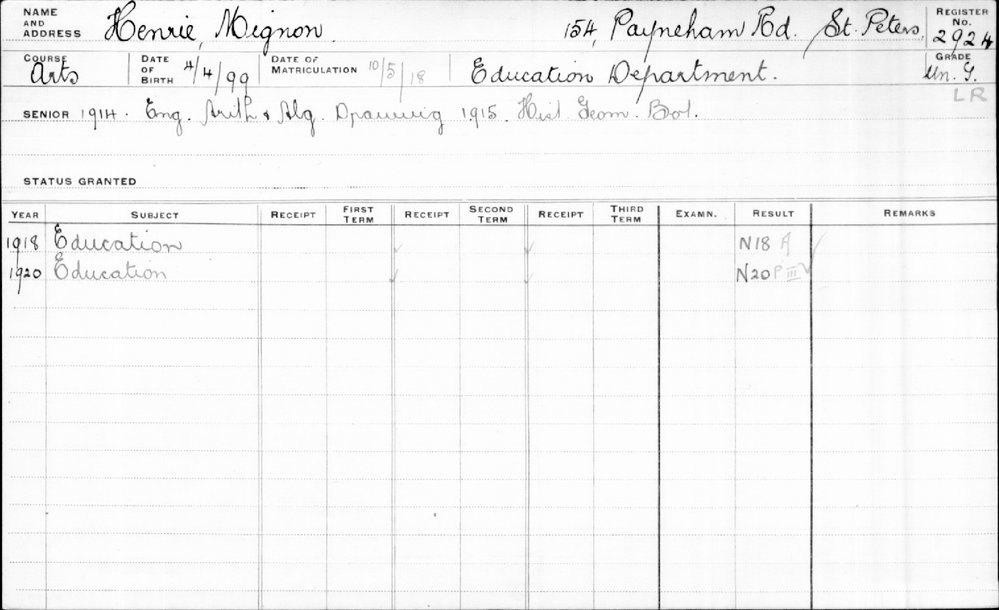 NAME AND ADDRESS Henrie, Mignon 154, Payneham Rd. St. Peters, REGISTER No. 2924
COURSE Arts DATE OF BIRTH 4/4/99 DATE OF MATRICULATION 10/5/18 Education Department. GRADE Un. G.
LR
SENIOR 1914. Eng. Arith & Alg. Drawing 1915. Hist. Geom. Bot.
STATUS GRANTED
YEAR SUBJECT RECEIPT FIRST TERM RECEIPT SECOND TERM RECEIPT THIRD TERM EXAMN. RESULT REMARKS
1918 Education N18 A
1920 Education N20 P III